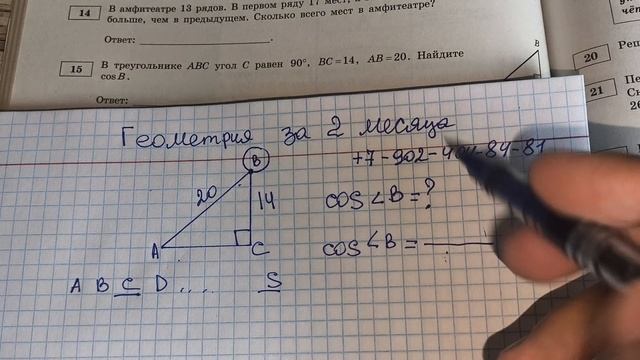 14 В амфитеатре 13 рядов. В первом ряду 17 мест,
больше, чем в предыдущем. Сколько всего мест в амфитеатре?
Ответ:
15 В треугольнике ABC угол C равен 90°, BC=14, AB=20. Найдите
cos B.
Ответ:
B
20 Реш
21 Пер
Геометрия за 2 месяца
+7-902-404-84-81
B
20
14
A
C
cos∠B=?
cos∠B=
A B C D .... S